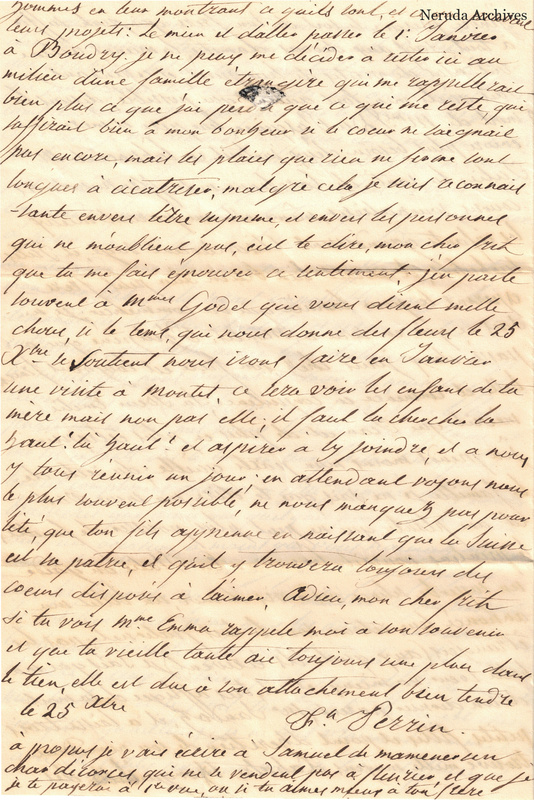 Neruda Archives
hommes en leur montrant ce qu'ils sont, et
leurs projets: le mien est d'aller passer le 1er Janvier
à Boudry. je ne peux me décider à rester ici au
milieu d'une famille étrangère qui me rappellerait
bien plus ce que j'ai perdu que ce qui me reste, qui
suffirait bien à mon bonheur si le coeur ne saignait
pas encore, mais les plaies que rien ne ferme sont
longues à cicatriser, malgré cela je suis reconnais
-sante envers l'être suprème, et envers les personnes
qui ne m'oublient pas, c'est te dire, mon cher fritz
que tu me fais éprouver ce sentiment; j'en parle
souvent à Mmes Godet qui vous disent mille
choses, si le tems, qui nous donne des fleurs le 25
Xbre se soutient nous irons faire en Janvier
une visite à montet, ce sera voir les enfans de ta
mère mais non pas elle, il faut la chercher là
haut! là haut! et aspirer à l'y joindre, et a nous
y tous reunir un jour; en attendant voyons nous
le plus souvent possible, ne nous manquez pas pour
l'été, que ton fils apprenne en naissant que la Suisse
est sa patrie, et qu'il y trouvera toujours des
coeurs disposés à l'aimer. Adieu, mon cher fritz
si tu vois Mme Emma rappele moi à son souvenir
et que ta vieille tante aie toujours une place dans
le tien, elle est due à son attachement bien tendre
le 25 Xbre
Perrin.
à propos je vais écrire à Samuel de m'amener un
char d'écorces, qui ne se vendent pas à fleurier, et que je
lui payerai à vue, ou si tu aimes mieux à ton frère